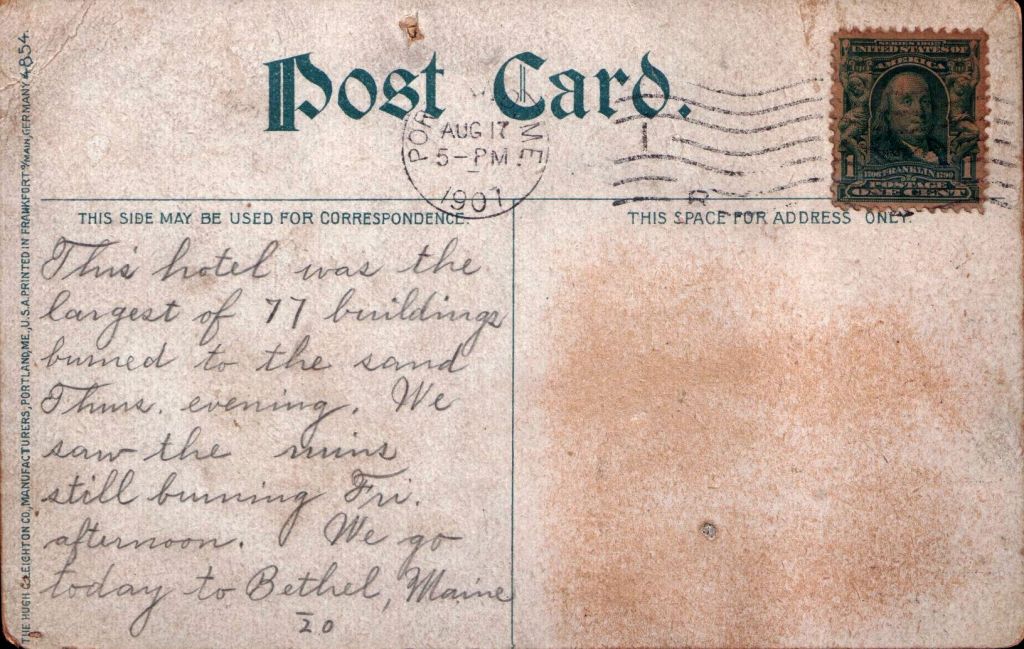 Post Card.
SERIES 1902
UNITED STATES OF
AMERICA
1 1706 FRANKLIN 1790 1
POSTAGE
ONE CENT
POR ME.
AUG 17
5-PM
1907
1
R
THIS SIDE MAY BE USED FOR CORRESPONDENCE.
This hotel was the
largest of 77 buildings
burned to the sand
Thurs. evening. We
saw the ruins
still burning Fri.
afternoon. We go
today to Bethel, Maine
20
THIS SPACE FOR ADDRESS ONLY.
THE HUGH C. LEIGHTON CO., MANUFACTURERS, PORTLAND, ME., U.S.A. PRINTED IN FRANKFORT o/MAIN, GERMANY 4854.